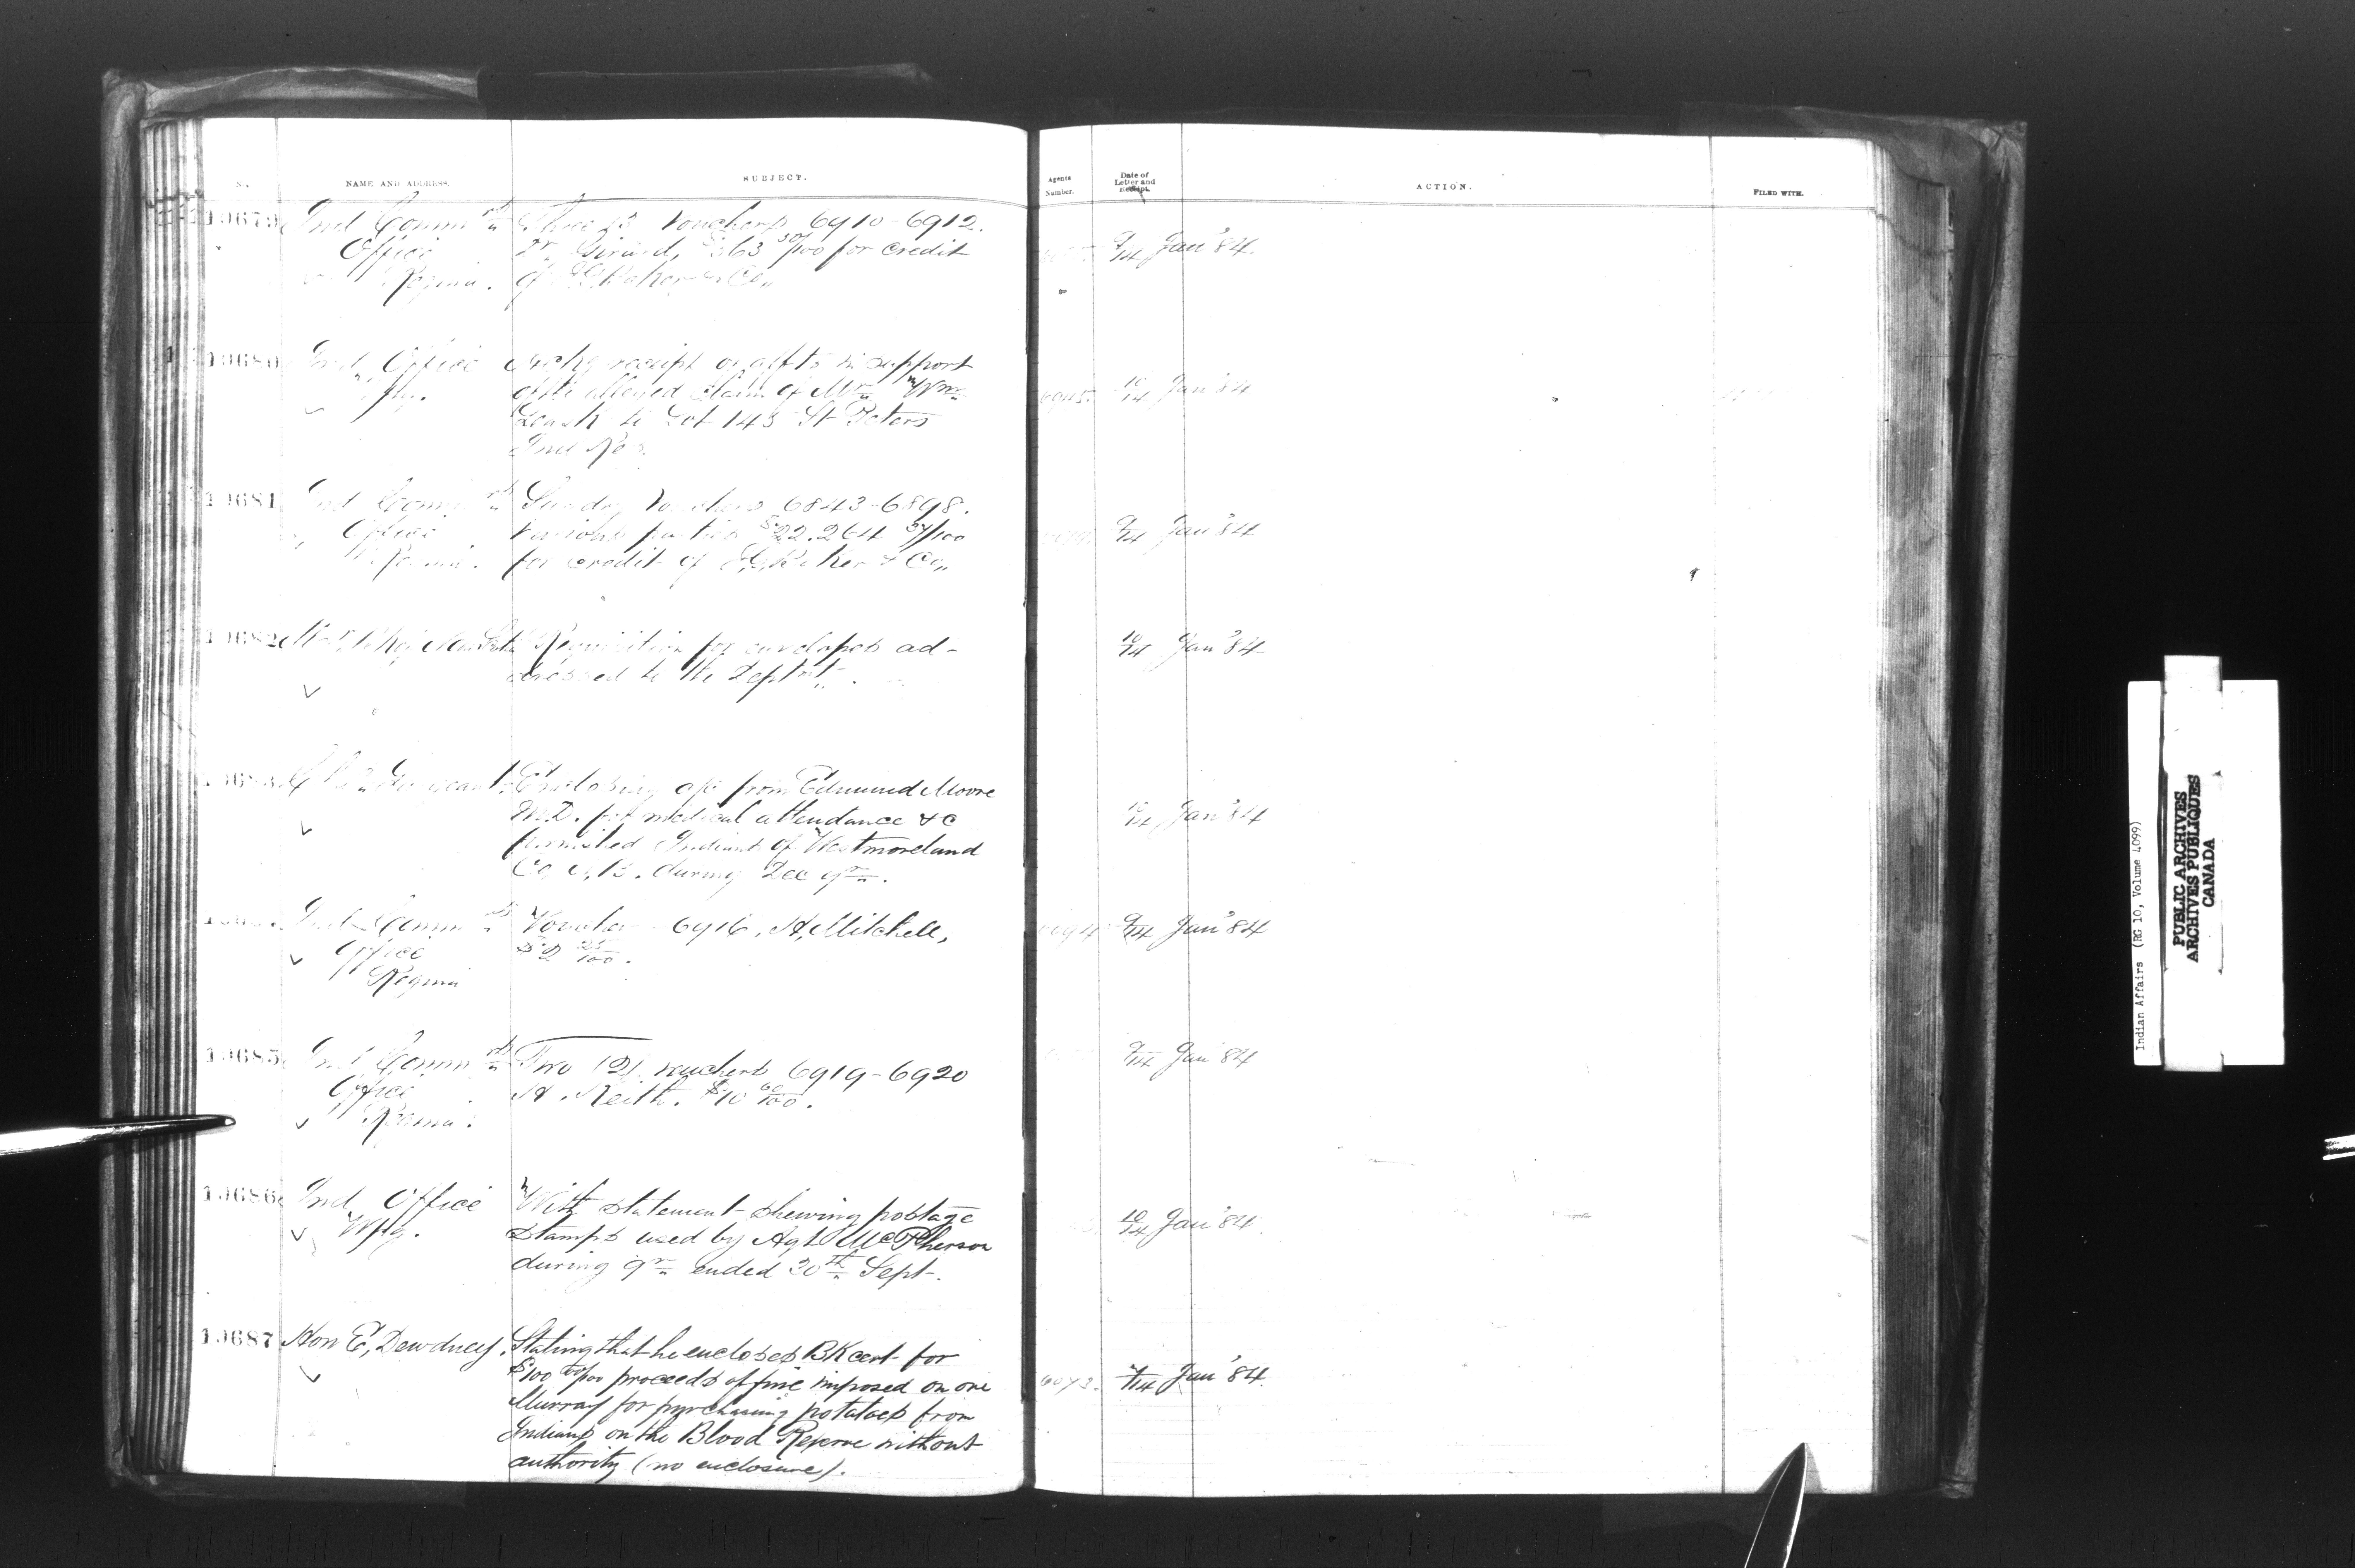 No.
NAME AND ADDRESS.
SUBJECT.
Agents Number.
Date of Letter and Receipt.
ACTION.
FILED WITH.
19679
Ind Comm rs
Office
Regina.
Three (3) Vouchers 6910-6912.
Dr. Girard, $363 50/100 for credit
of I.G. Baker & Co
9/14 Jan'84
19680
Ind Office
Wpg.
receipt of affts in support
of the alleged claim of Mr Wm
to Lot 143 St Peters
Ind Res.
10/14 Jan'84
19681
Ind Comm rs
Office
Regina.
Sunday Vouchers 6843-6898.
various parties $22.264 37/100
for credit of I.G. Baker & Co
9/14 Jan'84
19682
Requisition for envelopes ad-
dressed to the Deptmt.
10/14 Jan'84
19683
Enclosing a/c from Edmund Moore
M.D. for medical attendance &c
furnished Indians of Westmoreland
Co. N.B. during Dec qr.
10/14 Jan'84
Ind Comm rs
Office
Regina
Voucher 6916, H. Mitchell,
$2 25/100.
9/14 Jan'84
19685
Ind Comm rs
Office
Regina.
Two (2) vouchers 6919-6920
H. Keith. $10 60/100.
9/14 Jan'84
19686
Ind Office
Wpg.
With statement shewing postage
stamps used by Agt McPherson
during qr ended 30th Sept.
10/14 Jan'84
19687
Hon E, Dewdney.
Stating that he encloses BK cert for
$100 00/100 proceeds of fine imposed on one
Murray for purchasing potatoes from
Indians on the Blood Reserve without
authority (no enclosure).
/14 Jan'84.
Indian Affairs (RG 10, Volume 4099)
PUBLIC ARCHIVES
ARCHIVES PUBLIQUES
CANADA